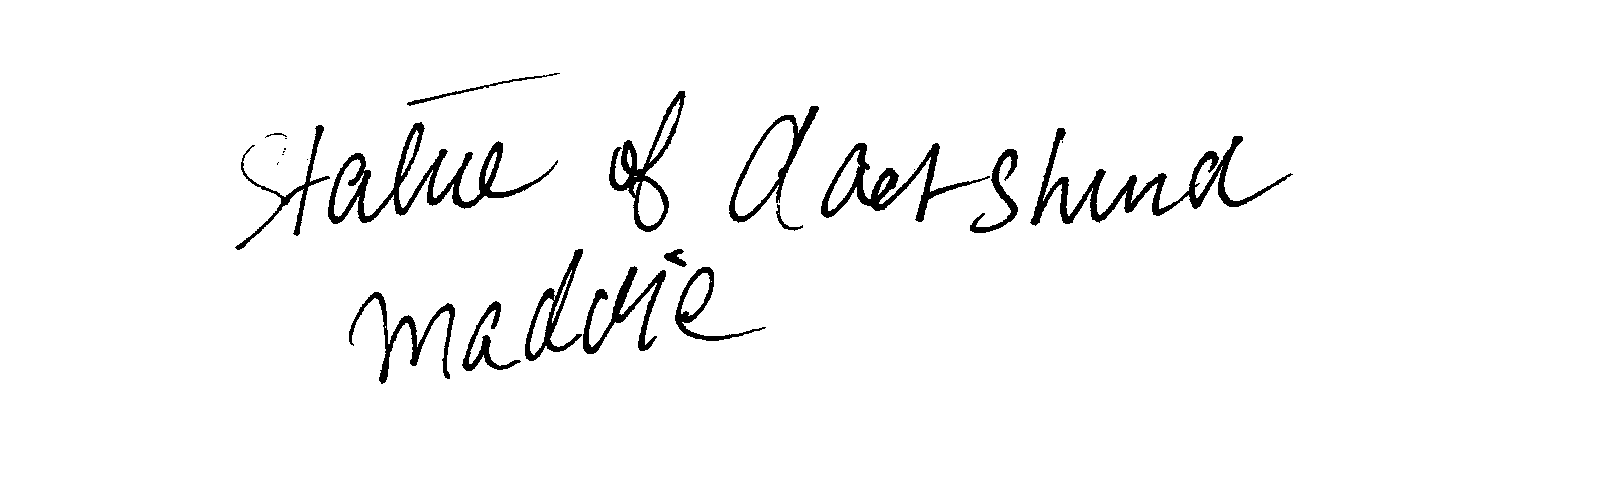 Statue of dactshund
Maddie